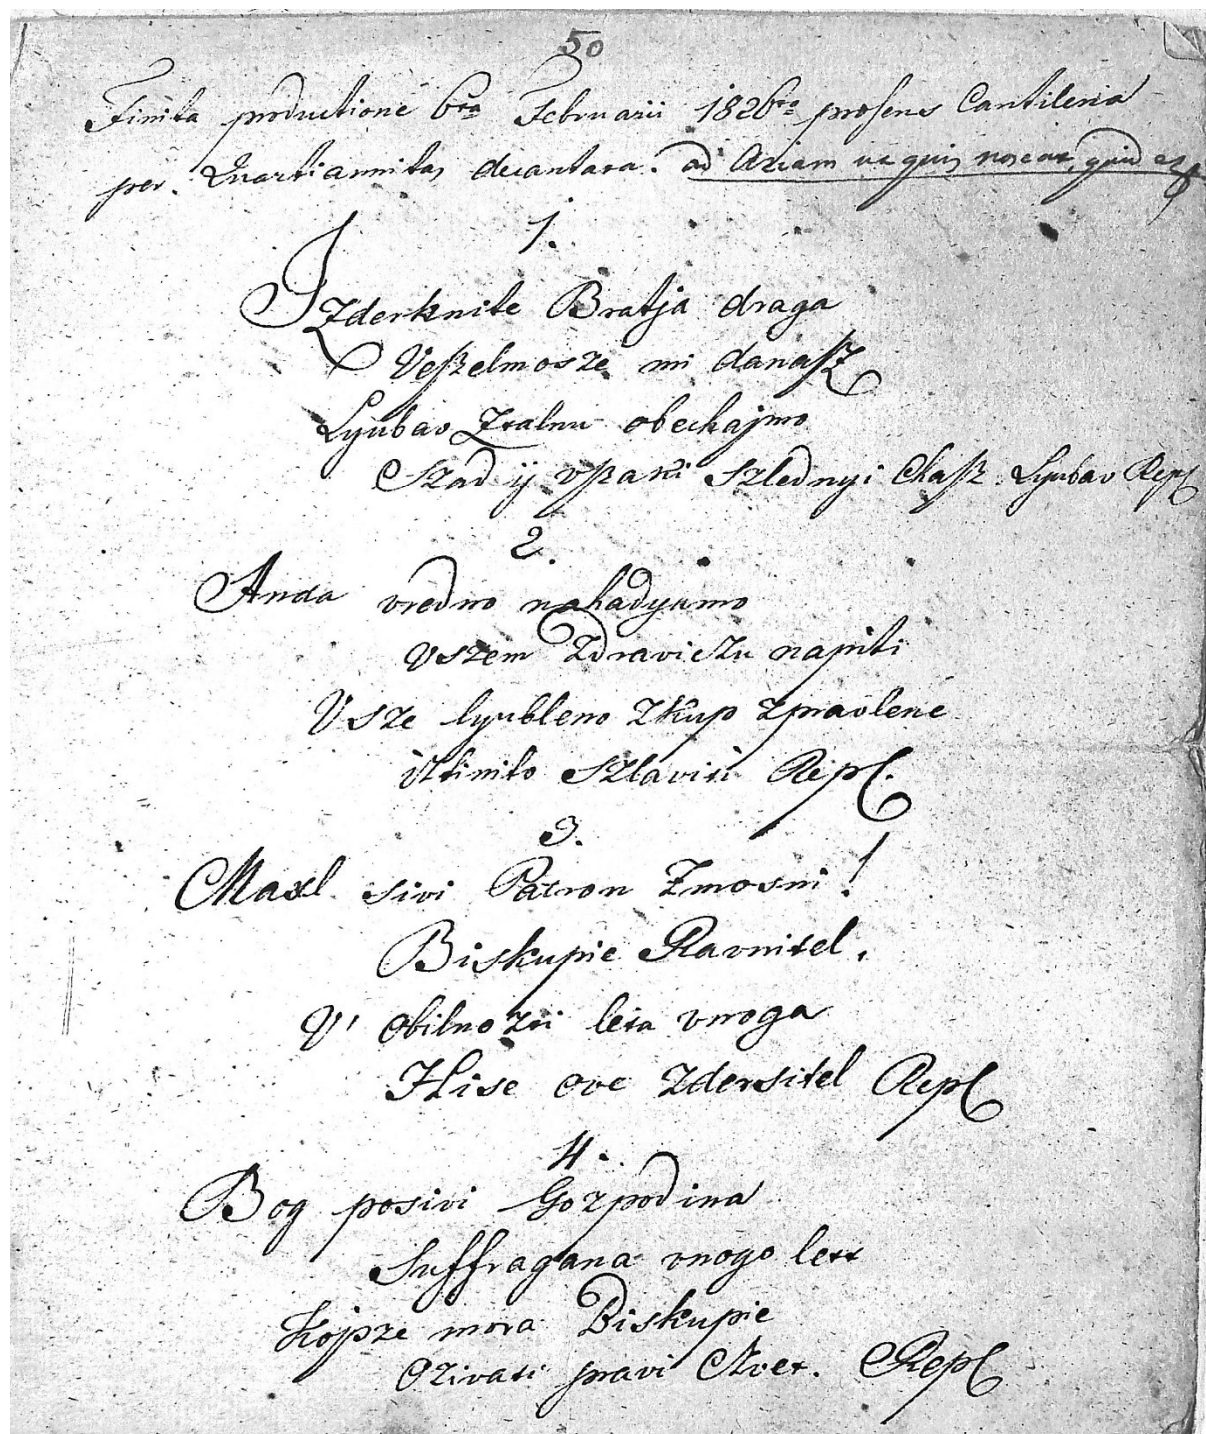 50
Finita productione 6ta Februarii 1826to praesens Cantilena
per Quartiannitas decantata. ad Ariam
1.
Izderknite Bratja draga
Veszelmosze mi danasz
Lyubav Ztalnu obechajmo
Szad ij vszaki szlednyi Chasz. Lyubav Rep
2.
Anda vredno nahadyamo
Vszem Zdraviczu napiti
Vsze lyubleno zkup zpravlene
iztinito szlaviti Rep.
3.
Maxl sivi Patron Zmosni!
Biskupie Ravnitel,
V' obilnozti leta vnoga
Hise ove Zdersitel Rep
4.
Bog posivi Gozpodina
Suffragana vnogo let
Kojsze mora Biskupie
Ozivati pravi Czvet. Rep